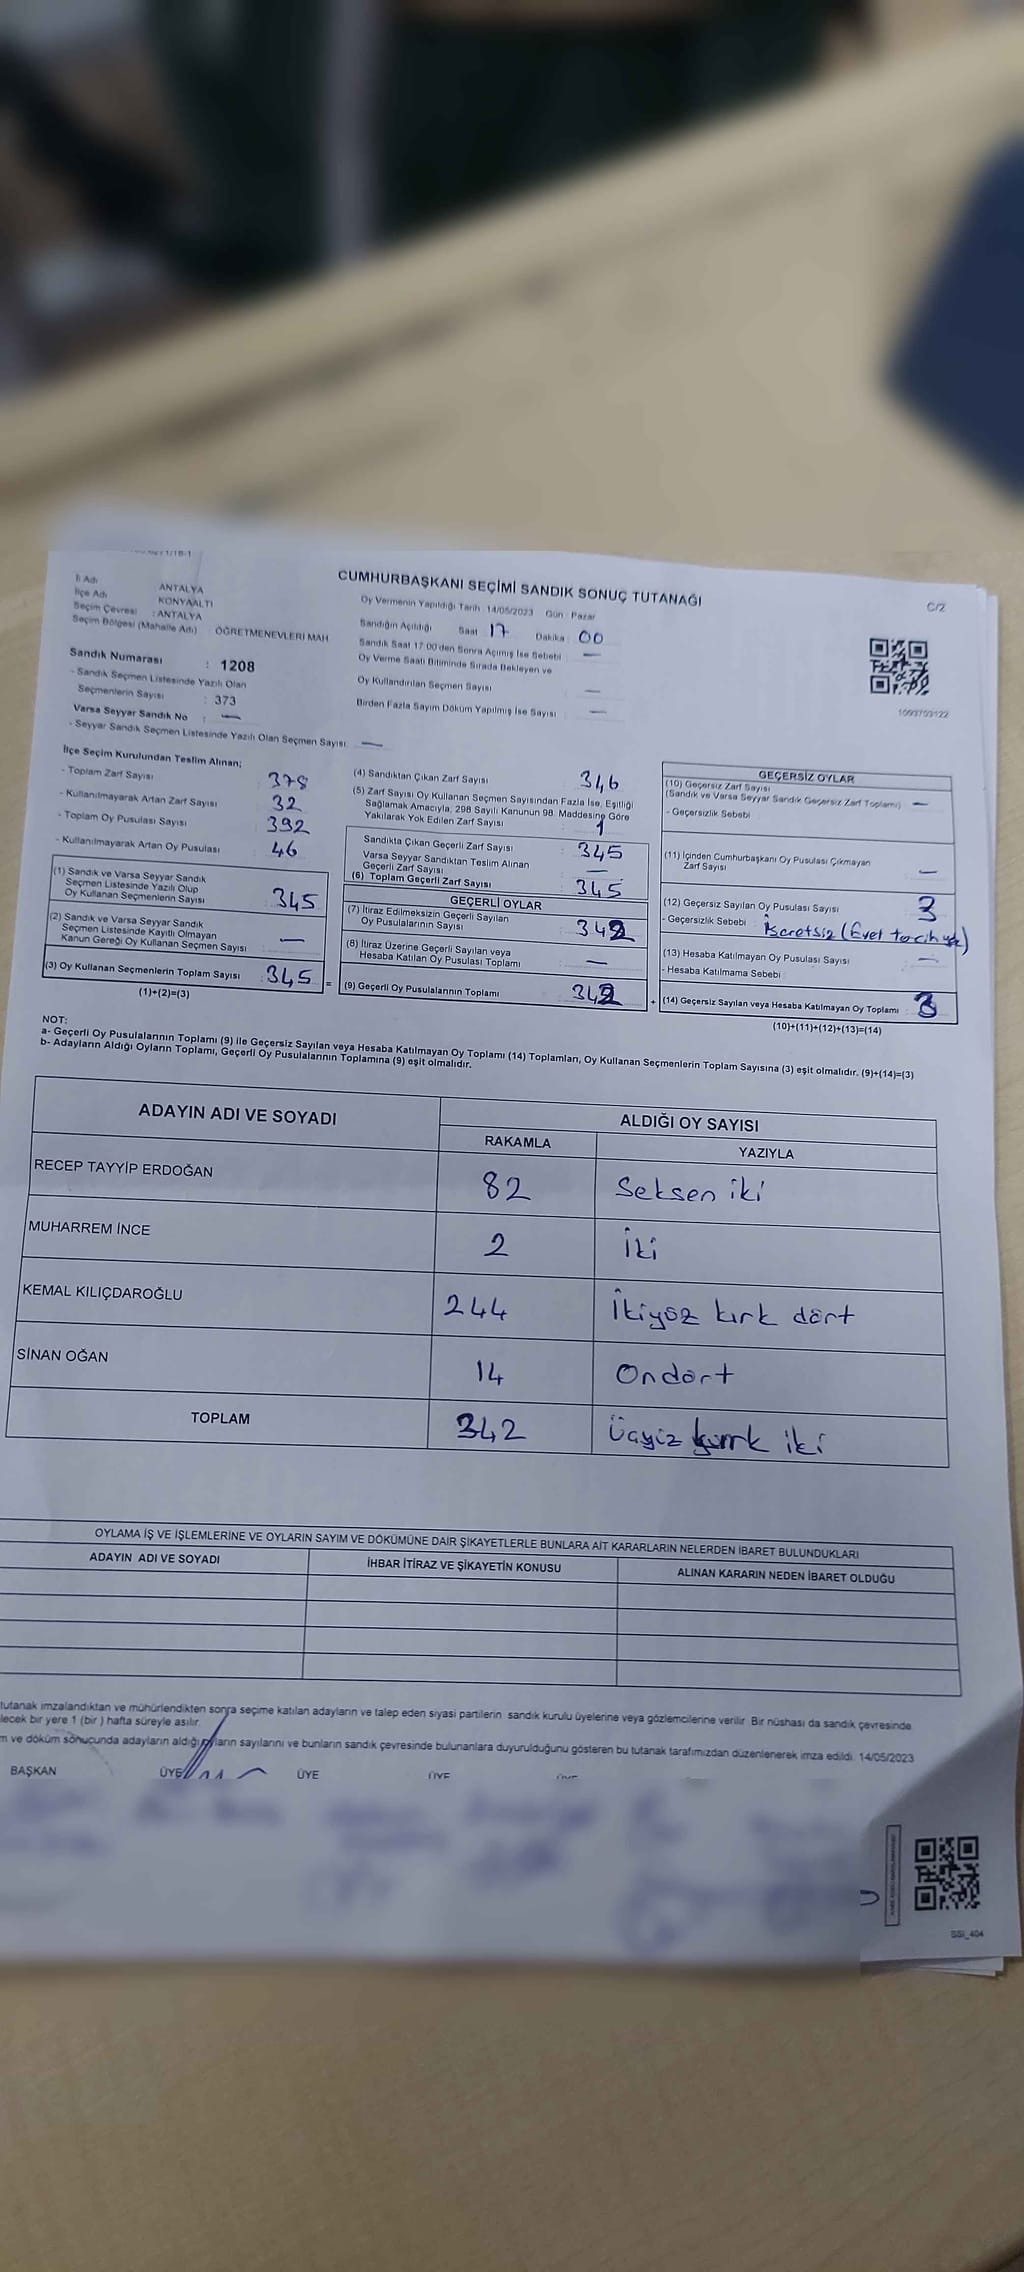 CUMHURBAŞKANI SEÇİMİ SANDIK SONUÇ TUTANAĞI
C/2
İl Adı ANTALYA
İlçe Adı KONYAALTI
Seçim Çevresi : ANTALYA
Seçim Bölgesi (Mahalle Adı) : ÖĞRETMENEVLERİ MAH.
Sandık Numarası : 1208
- Sandık Seçmen Listesinde Yazılı Olan
Seçmenlerin Sayısı : 373
Varsa Seyyar Sandık No : —
- Seyyar Sandık Seçmen Listesinde Yazılı Olan Seçmen Sayısı: —
Oy Vermenin Yapıldığı Tarih : 14/05/2023 Gün : Pazar
Sandığın Açıldığı Saat 17 Dakika : 00
Sandık Saat 17:00'den Sonra Açılmış İse Sebebi : —
Oy Verme Saati Bitiminde Sırada Bekleyen ve
Oy Kullandırılan Seçmen Sayısı —
Birden Fazla Sayım Döküm Yapılmış İse Sayısı : —
1093703122
İlçe Seçim Kurulundan Teslim Alınan;
- Toplam Zarf Sayısı 378
- Kullanılmayarak Artan Zarf Sayısı 32
- Toplam Oy Pusulası Sayısı 392
- Kullanılmayarak Artan Oy Pusulası : 46
(1) Sandık ve Varsa Seyyar Sandık
Seçmen Listesinde Yazılı Olup
Oy Kullanan Seçmenlerin Sayısı : 345
(2) Sandık ve Varsa Seyyar Sandık
Seçmen Listesinde Kayıtlı Olmayan
Kanun Gereği Oy Kullanan Seçmen Sayısı —
(3) Oy Kullanan Seçmenlerin Toplam Sayısı : 345 =
(1)+(2)=(3)
(4) Sandıktan Çıkan Zarf Sayısı : 346
(5) Zarf Sayısı Oy Kullanan Seçmen Sayısından Fazla İse, Eşitliği
Sağlamak Amacıyla; 298 Sayılı Kanunun 98. Maddesine Göre
Yakılarak Yok Edilen Zarf Sayısı : 1
Sandıkta Çıkan Geçerli Zarf Sayısı : 345
Varsa Seyyar Sandıktan Teslim Alınan
Geçerli Zarf Sayısı —
(6) Toplam Geçerli Zarf Sayısı : 345
GEÇERLİ OYLAR
(7) İtiraz Edilmeksizin Geçerli Sayılan
Oy Pusulalarının Sayısı : 342
(8) İtiraz Üzerine Geçerli Sayılan veya
Hesaba Katılan Oy Pusulası Toplamı : —
(9) Geçerli Oy Pusulalarının Toplamı : 342 +
GEÇERSİZ OYLAR
(10) Geçersiz Zarf Sayısı
(Sandık ve Varsa Seyyar Sandık Geçersiz Zarf Toplamı) —
- Geçersizlik Sebebi :
(11) İçinden Cumhurbaşkanı Oy Pusulası Çıkmayan
Zarf Sayısı —
(12) Geçersiz Sayılan Oy Pusulası Sayısı 3
- Geçersizlik Sebebi : İşaretsiz (Evet tercih yok)
(13) Hesaba Katılmayan Oy Pusulası Sayısı : —
- Hesaba Katılmama Sebebi
(14) Geçersiz Sayılan veya Hesaba Katılmayan Oy Toplamı : 3
(10)+(11)+(12)+(13)=(14)
NOT:
a- Geçerli Oy Pusulalarının Toplamı (9) ile Geçersiz Sayılan veya Hesaba Katılmayan Oy Toplamı (14) Toplamları, Oy Kullanan Seçmenlerin Toplam Sayısına (3) eşit olmalıdır. (9)+(14)=(3)
b- Adayların Aldığı Oyların Toplamı, Geçerli Oy Pusulalarının Toplamına (9) eşit olmalıdır.
ADAYIN ADI VE SOYADI ALDIĞI OY SAYISI
RAKAMLA YAZIYLA
RECEP TAYYİP ERDOĞAN 82 Seksen iki
MUHARREM İNCE 2 İki
KEMAL KILIÇDAROĞLU 244 İkiyüz kırk dört
SİNAN OĞAN 14 Ondört
TOPLAM 342 Üçyüz kırk iki
OYLAMA İŞ VE İŞLEMLERİNE VE OYLARIN SAYIM VE DÖKÜMÜNE DAİR ŞİKAYETLERLE BUNLARA AİT KARARLARIN NELERDEN İBARET BULUNDUKLARI
ADAYIN ADI VE SOYADI İHBAR İTİRAZ VE ŞİKAYETİN KONUSU ALINAN KARARIN NEDEN İBARET OLDUĞU
tutanak imzalandıktan ve mühürlendikten sonra seçime katılan adayların ve talep eden siyasi partilerin sandık kurulu üyelerine veya gözlemcilerine verilir. Bir nüshası da sandık çevresinde
lecek bir yere 1 (bir) hafta süreyle asılır.
m ve döküm sonucunda adayların aldığı oyların sayılarını ve bunların sandık çevresinde bulunanlara duyurulduğunu gösteren bu tutanak tarafımızdan düzenlenerek imza edildi. 14/05/2023
BAŞKAN ÜYE ÜYE ÜYE
SSI_404